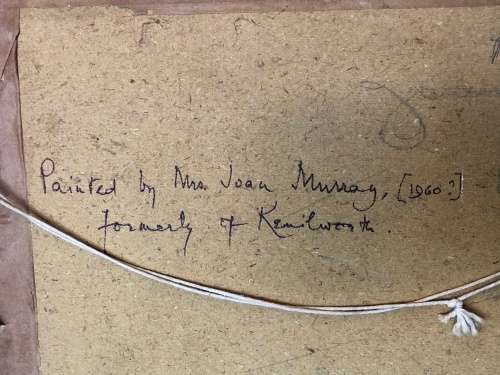 Painted by Mrs Joan Murray, [1960?]
formerly of Kenilworth.